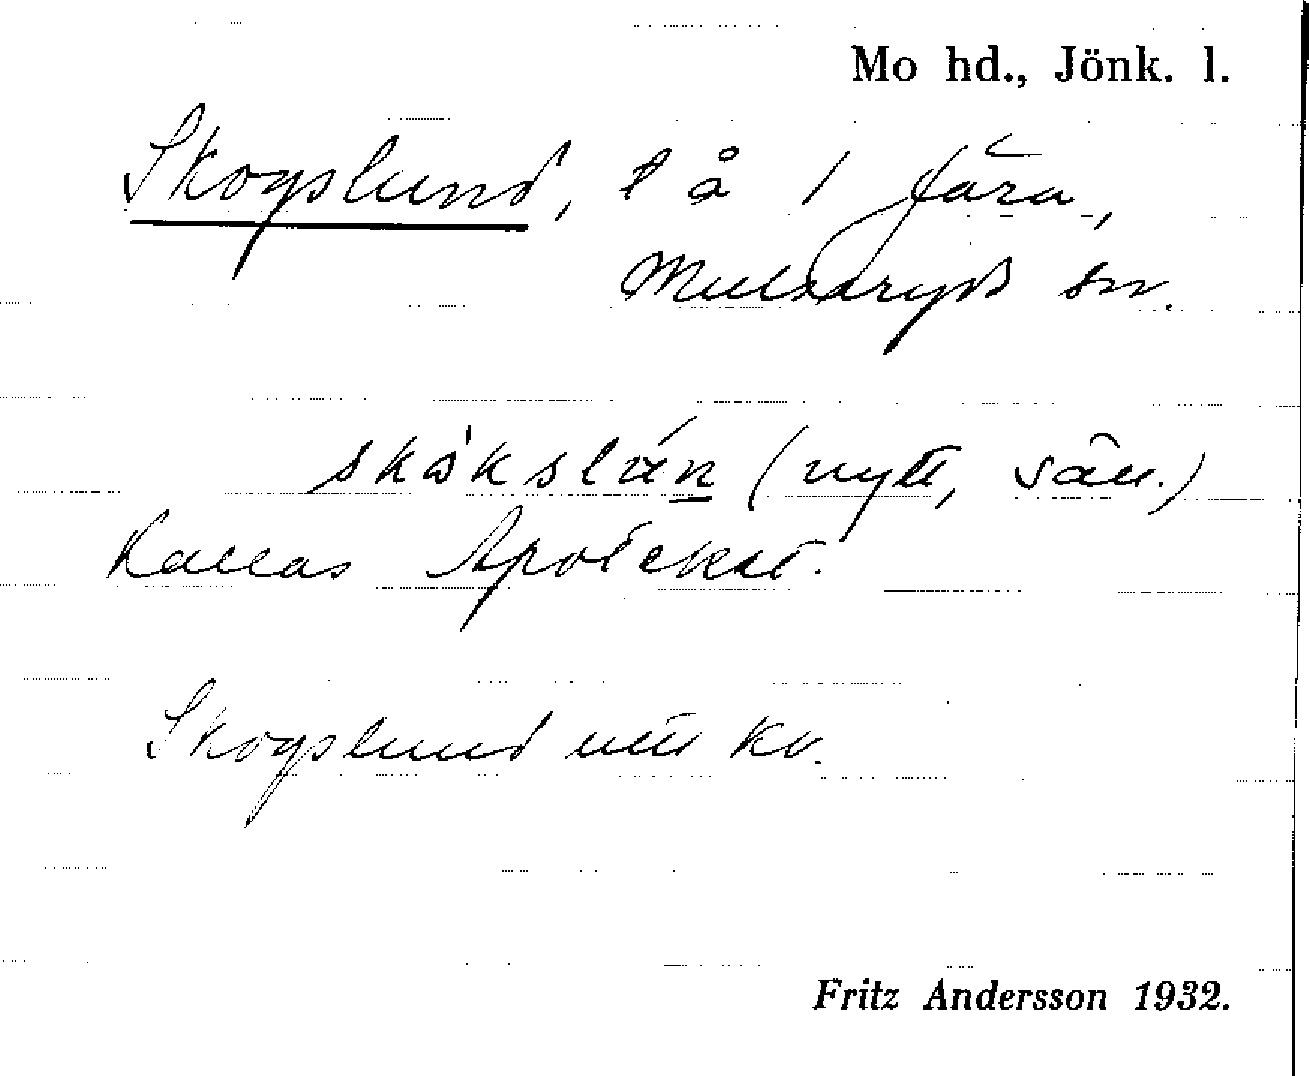 Mo hd., Jönk. l.
Skogslund, l å 1 Jära,
Mulseryds sn.
skåkslún (nytt, sän.)
Kallas Apoteket.
Skogslund utt kv.
Fritz Andersson 1932.